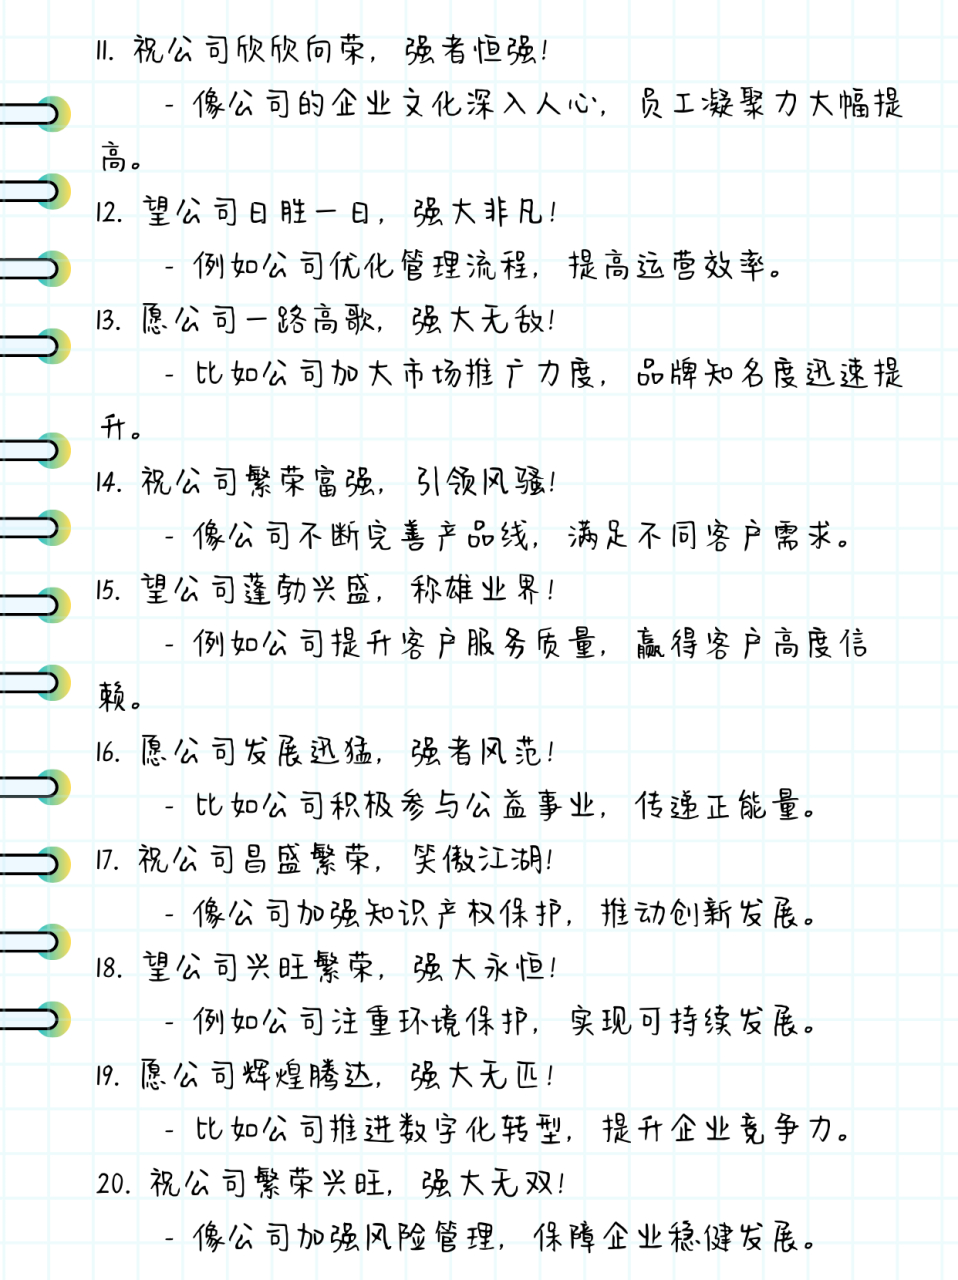 11. 祝公司欣欣向荣，强者恒强！
- 像公司的企业文化深入人心，员工凝聚力大幅提
高。
12. 望公司日胜一日，强大非凡！
- 例如公司优化管理流程，提高运营效率。
13. 愿公司一路高歌，强大无敌！
- 比如公司加大市场推广力度，品牌知名度迅速提
升。
14. 祝公司繁荣富强，引领风骚！
- 像公司不断完善产品线，满足不同客户需求。
15. 望公司蓬勃兴盛，称雄业界！
- 例如公司提升客户服务质量，赢得客户高度信
赖。
16. 愿公司发展迅猛，强者风范！
- 比如公司积极参与公益事业，传递正能量。
17. 祝公司昌盛繁荣，笑傲江湖！
- 像公司加强知识产权保护，推动创新发展。
18. 望公司兴旺繁荣，强大永恒！
- 例如公司注重环境保护，实现可持续发展。
19. 愿公司辉煌腾达，强大无匹！
- 比如公司推进数字化转型，提升企业竞争力。
20. 祝公司繁荣兴旺，强大无双！
- 像公司加强风险管理，保障企业稳健发展。